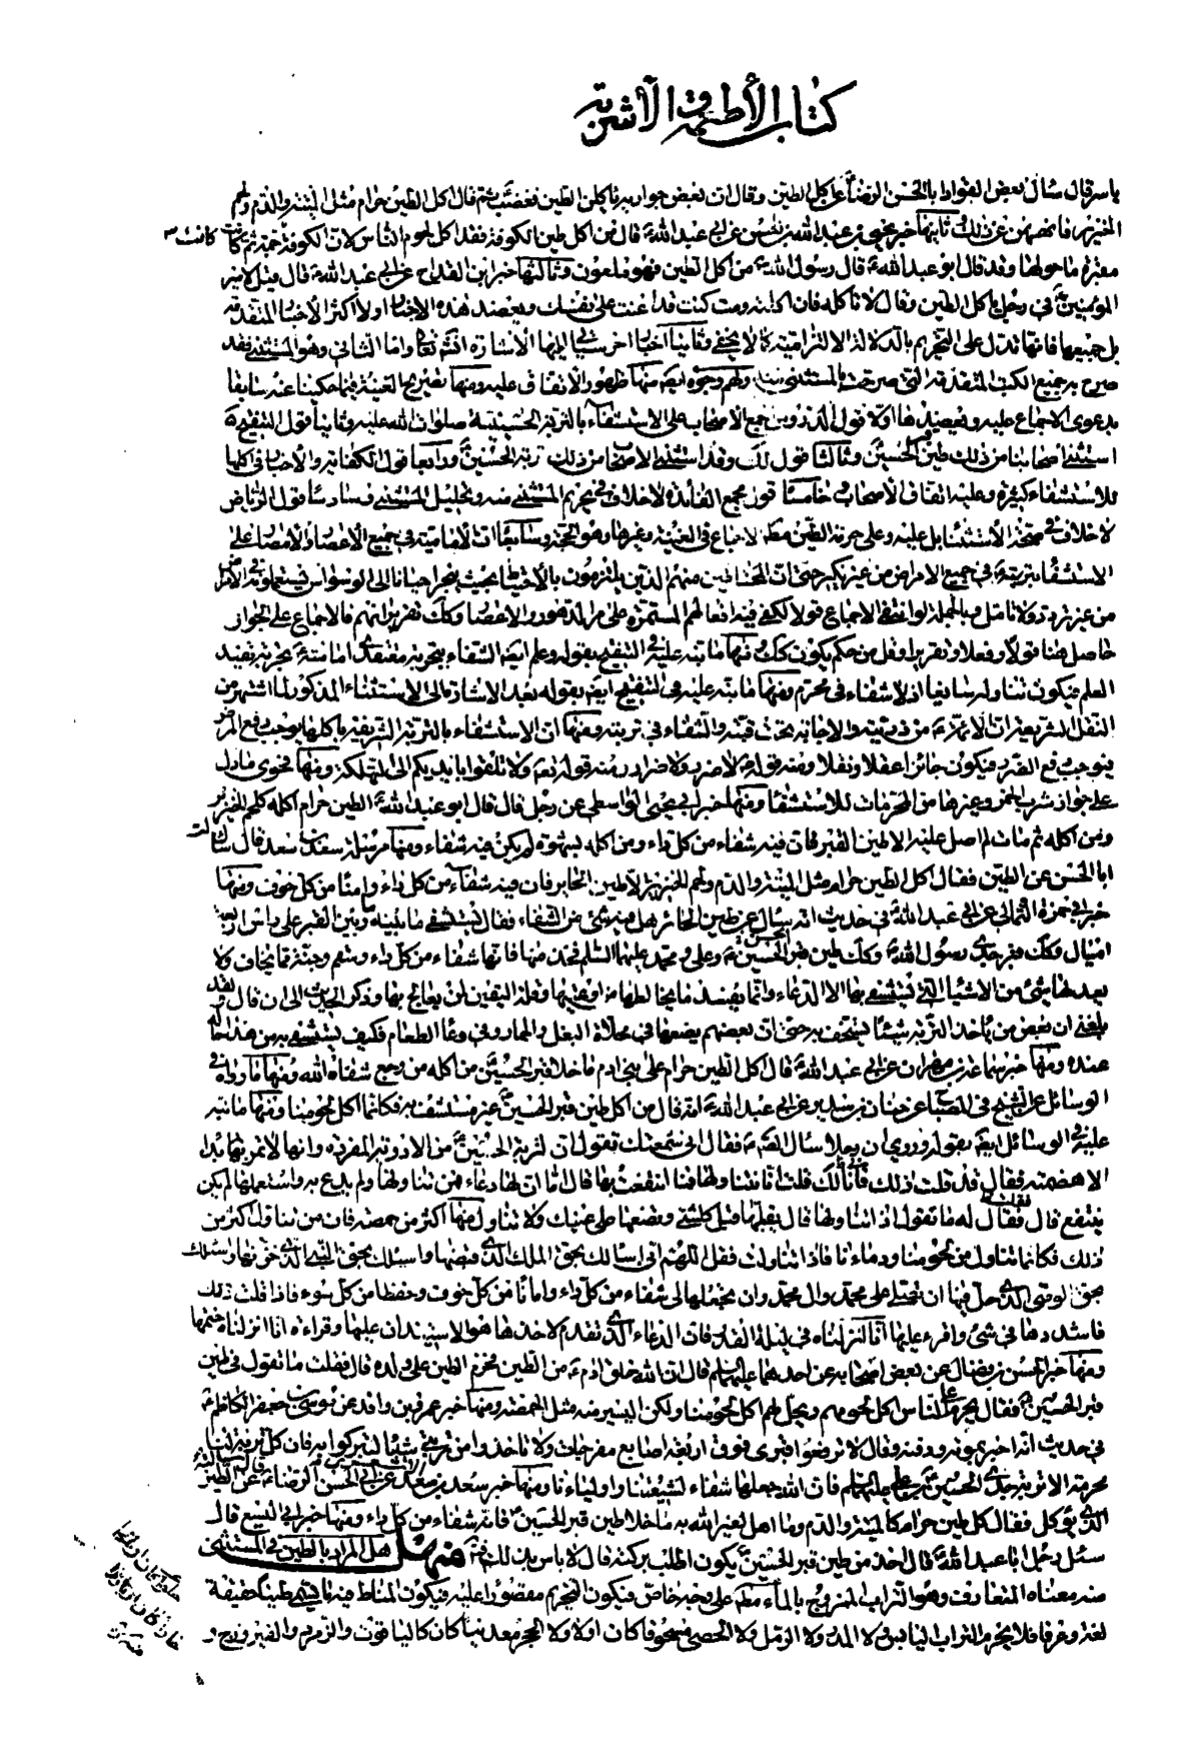 كتاب الأطعمة والأشربة
ياسر قال سأل بعض القواد ابا الحسن الرضا ع عن اكل الطين وقال ان بعض جواريه ياكلن الطين فغضب ثم قال اكل الطين حرام مثل الميتة والدم ولحم
الخنزير فانههن عن ذلك وثانيها خبر يحيى بن عبد الله بن الحسن عن ابي عبد الله ع قال من اكل طين الكوفة فقد اكل لحوم الناس لان الكوفة كانت اجمة ثم كانت
مقبرة ما حولها وقد قال ابو عبد الله ع قال رسول الله ص من اكل الطين فهو ملعون وثالثها خبر ابن القداح عن ابي عبد الله ع قال قيل لامير
المؤمنين ع في رجل ياكل الطين وقال لا تاكله فان اكلته ومت كنت قد اعنت على نفسك ويعضد هذه الاخبار اولا اكثر الاخبار المتقدمة
بل جميعها فانها تدل على التحريم بالدلالة الالتزامية كما لا يخفى وثانيا اخبار اخر سياتي اليها الاشارة انشم تعالى واما الثاني وهو المستثنى فقد
صرح به جميع الكتب المتقدمة التي صرحت بالمستثنى منه ولهم وجوه ايضم منها ظهور الاتفاق عليه ومنها تصريح الغنية فيما حكينا عنه سابقا
بدعوى الاجماع عليه ويعضده هنا اولا قول الدروس اجمع الاصحاب على الاستشفاء بالتربة الحسينية صلوات الله عليه وثانيا قول التنقيح
استثنى اصحابنا من ذلك طين قبر الحسين ع وثالثا قول لك وقد استثنى الاصحاب من ذلك تربة الحسين ع ورابعا قول الكفاية والاخبار في اكلها
للاستشفاء كثيرة وعليه اتفاق الاصحاب وخامسا قول مجمع الفائدة لا خلاف في تحريم المستثنى منه وتحليل المستثنى وسادسا قول الرياض
لا خلاف في صحة الاستثناء بل عليه وعلى حرمة الطين مطم الاجماع في الغنية وغيرها وهو الحجة وسابعا ان الامامية في جميع الاعصار والامصار على
الاستشفاء بتربته ع في جميع الامراض من غير نكير حتى ان المخالفين منهم الذين يلتزمون بالاحتياط بحيث ينجر احيانا الى الوسواس يستعملونه في الامراض
من غير تردد ولا تامل وبالجملة لو انتفى الاجماع قولا لكفى فيه افعالهم المستمرة على مر الدهور والاعصار وكك تقريراتهم فالاجماع على الجواز
حاصل هنا قولا وفعلا وتقريرا وقل من حكم يكون كك ومنها ما نبه عليه في التنقيح بقوله وعلم ايضم الشفاء بتجربة معتقدي امامته ع تجربة تفيد
العلم فيكون تناوله سايغا اذ لا شفاء في محرم ومنها ما نبه عليه في التنقيح ايضم بقوله بعد الاشارة الى الاستثناء المذكور لما اشتهر من
النقل الشريف ان الائمة ع من ذريته والاجابة تحت قبته والشفاء في تربته ومنها ان الاستشفاء بالتربة الشريفة باكلها يوجب رفع المرض
فيوجب رفع الضرر فيكون جائزا عقلا ونقلا ومنه قوله ص لا ضرر ولا ضرار ومنه قوله تعم ولا تلقوا بايديكم الى التهلكة ومنها فحوى ما دل
على جواز شرب الخمر وغيرها من المحرمات للاستشفاء ومنها خبر ابي يحيى الواسطي عن رجل قال قال ابو عبد الله ع الطين حرام اكله كلحم الخنزير
ومن اكله ثم مات لم اصل عليه الا طين القبر فان فيه شفاء من كل داء ومن اكله بشهوة لم يكن فيه شفاء ومنها مرسلة سعد بن سعد قال سالت
ابا الحسن عن الطين فقال اكل الطين حرام مثل الميتة والدم ولحم الخنزير الا طين الحاير فان فيه شفاء من كل داء وامنا من كل خوف ومنها
خبر ابي حمزة الثمالي عن ابي عبد الله ع في حديث انه سال عن طين الحائر هل فيه شيء من الشفاء فقال يستشفى ما بينه وبين القبر على راس اربعة
اميال وكك قبر جدي رسول الله ص وكك طين قبر الحسن ع والحسين ع وعلي ومحمد عليهما السلم فخذ منها فانها شفاء من كل داء وسقم وجنة مما يخاف ولا
يعدلها شيء من الاشياء التي يستشفى بها الا الدعاء وانما يفسدها ما يخالطها من اوعيتها وقلة اليقين لمن يعالج بها وذكر الحديث الى ان قال ولقد
بلغني ان بعض من ياخذ التربة شيئا يستخف به حتى ان بعضهم يضعها في مخلاة البغل والحمار وفي وعاء الطعام فكيف يستشفى به من هذا حاله
عنده ومنها خبر سماعة بن مهران عن ابي عبد الله ع قال اكل الطين حرام على بني ادم ما خلا قبر الحسين ع من اكله من وجع شفاه الله ومنها ما رواه في
الوسائل عن الشيخ في المصباح عن حنان بن سدير عن ابي عبد الله ع انه قال من اكل طين قبر الحسين ع غير مستشف به فكانما اكل لحومنا ومنها ما نبه
عليه في الوسائل ايضم بقوله وروي ان رجلا سال الصم ع فقال اني سمعتك تقول ان تربة الحسين ع من الادوية المفردة وانها لا تمر بداء
الا هضمته فقال قد قلت ذلك فما لك قلت اني تناولتها فما انتفعت بها قال اما ان لها دعاء فمن تناولها ولم يدع به واستعملها لم يكن
ينتفع قال فقال له ما تقول اذا تناولها قال يقبلها قبل كل شيء وتضعها على عينيك ولا تناول منها اكثر من حمصة فان من تناول اكثر من
ذلك فكانما تناول من لحومنا ودمائنا فاذا تناولت فقل اللهم اني اسالك بحق الملك الذي قبضها واسئلك بحق النبي الذي خزنها واسئلك
بحق الوصي الذي حل فيها ان تصلي على محمد وال محمد وان تجعلها لي شفاء من كل داء وامانا من كل خوف وحفظا من كل سوء فاذا قلت ذلك
فاشددها في شيء واقرء عليها انا انزلناه في ليلة القدر فان الدعاء الذي تقدم لاخذها هو الاستيذان عليها وقراءة انا انزلناه ختمها
ومنها خبر الحسن بن فضال عن بعض اصحابه عن احدهما عليهما السلم قال ان الله خلق ادم ع من الطين فحرم الطين على ولده قال فقلت ما تقول في طين
قبر الحسين ع فقال يحرم على الناس اكل لحومهم ويحل لهم اكل لحومنا ولكن اليسير منه مثل الحمصة ومنها خبر عمر بن واقد عن موسى بن جعفر الكاظم ع
في حديث انه اخبر بموته ودفنه وقال لا ترفعوا قبري فوق اربعة اصابع مفرجات ولا تاخذوا من تربتي شيئا لتبركوا به فان كل تربة لنا
محرمة الا تربة جدي الحسين بن علي عليهما السلم فان الله جعلها شفاء لشيعتنا واوليائنا ومنها خبر سعد بن سعد عن ابي الحسن الرضا ع قال سالته عن الطين
الذي يؤكل فقال كل طين حرام كالميتة والدم وما اهل لغير الله به ما خلا طين قبر الحسين ع فانه شفاء من كل داء ومنها خبر ابي اليسع قال
سئل رجل ابا عبد الله ع قال اخذ من طين قبر الحسين ع يكون اطلب بركته قال لا باس بذلك منهل هل المراد بالطين في المستثنى
منه معناه المتعارف وهو التراب الممزوج بالماء مطم على وجه خاص فيكون التحريم مقصورا عليه فيكون المناط فيه ما يسمى طينا حقيقة
لغة وعرفا فلا يحرم التراب اليابس ولا المدر ولا الرمل ولا الحصى مسحوقا كان اولا ولا الحجر معدنيا كان كالياقوت والزمرد والفيروزج و